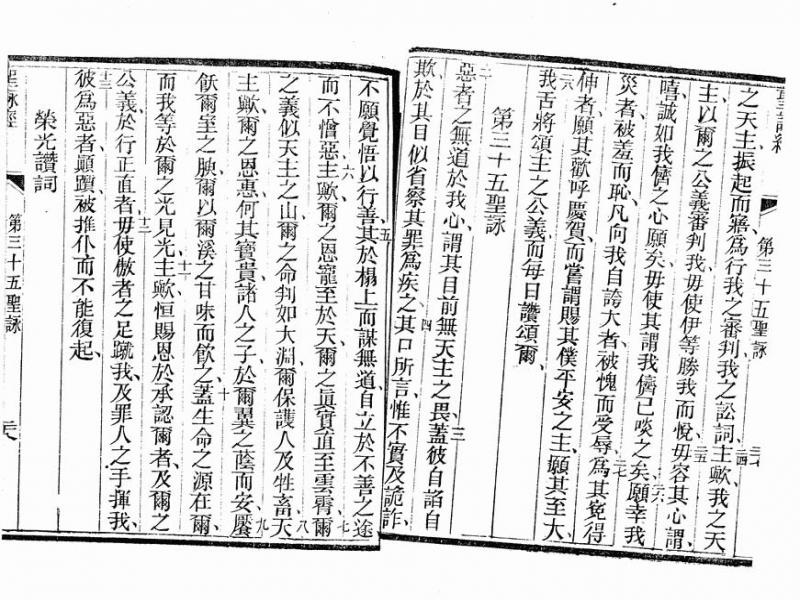 聖詠經
第三十五聖詠
之天主振起而寤爲行我之審判我之訟詞主歟我之天
二四
主以爾之公義審判我毋使伊等勝我而悅毋容其心謂
二五
嘻誠如我儕之心願矣毋使其謂我儕已啖之矣願幸我
二六
災者被羞而恥凡向我自誇大者被愧而受辱爲其寃得
二七
伸者願其歡呼慶賀而嘗謂賜其僕平安之主願其至大
二八
我舌將頌主之公義而每日讚頌爾
第三十五聖詠
二
惡者之無道於我心謂其目前無天主之畏蓋彼自諂自
三
欺於其目似省察其罪爲疾之其口所言惟不實及詭詐
四
不願覺悟以行善其於榻上而謀無道自立於不善之途
五
而不憎惡主歟爾之恩寵至於天爾之眞實直至雲霄爾
六 七
之義似天主之山爾之命判如大淵爾保護人及牲畜天
八
主歟爾之恩惠何其寶貴諸人之子於爾翼之蔭而安饜
九
飫爾室之腴爾以爾溪之甘味而飲之蓋生命之源在爾
十
而我等於爾之光見光主歟恒賜恩於承認爾者及爾之
十一
公義於行正直者毋使傲者之足蹴我及罪人之手揮我
十二
十三
彼爲惡者顚躓被推仆而不能復起
榮光讚詞
聖詠經
第三十五聖詠